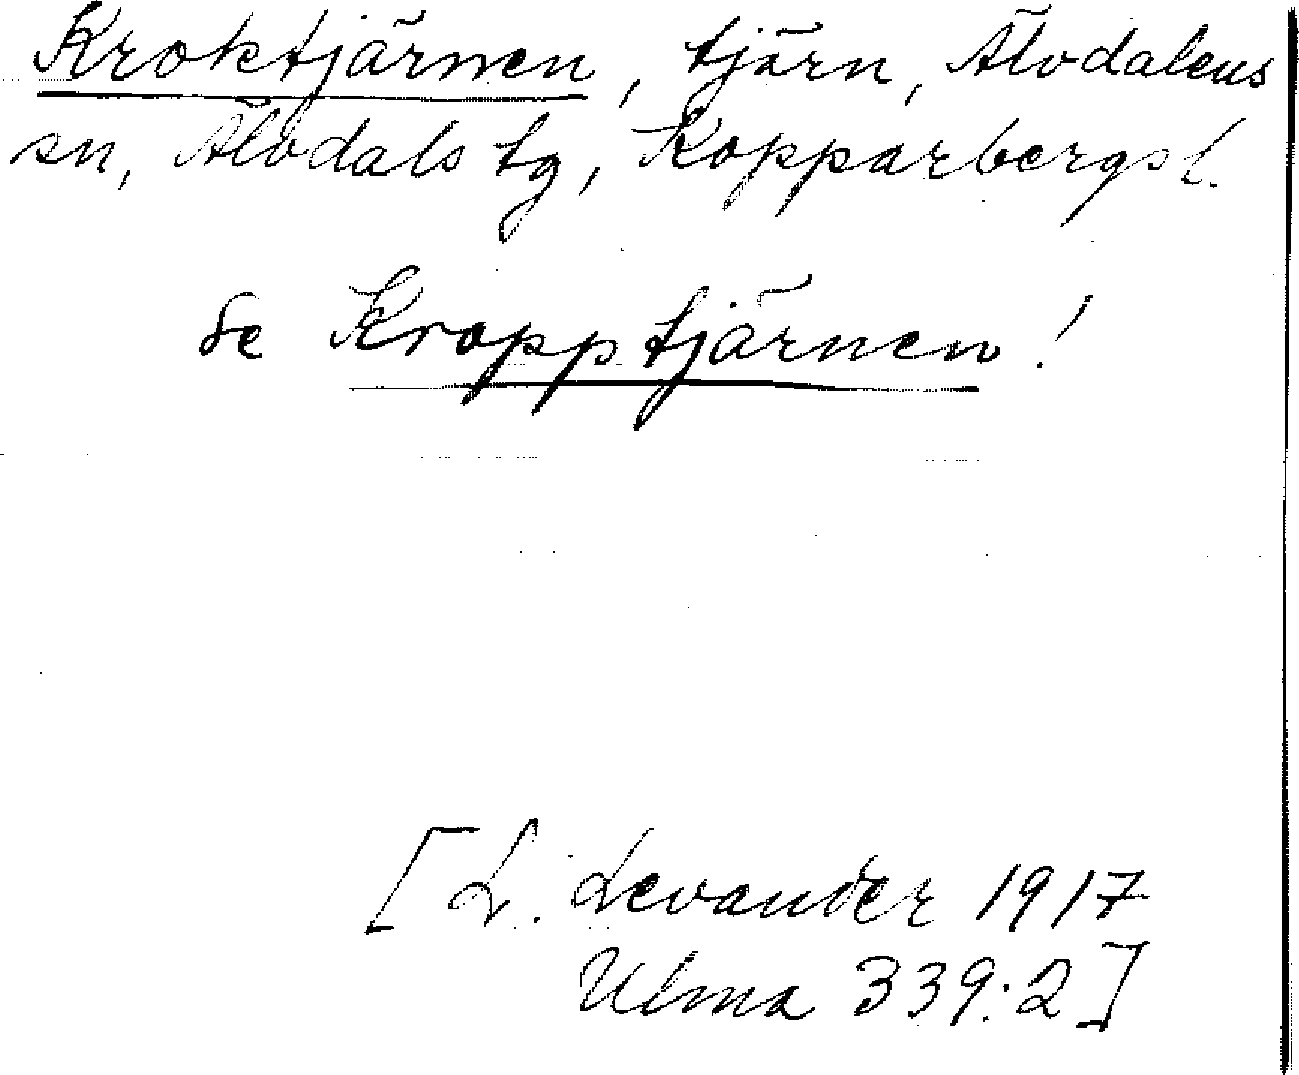 Kroktjärnen, tjärn, Älvdalens
sn, Älvdals tg, Kopparbergs l.
Se Kropptjärnen!
[L. Levander 1917
Ulma 339:2]